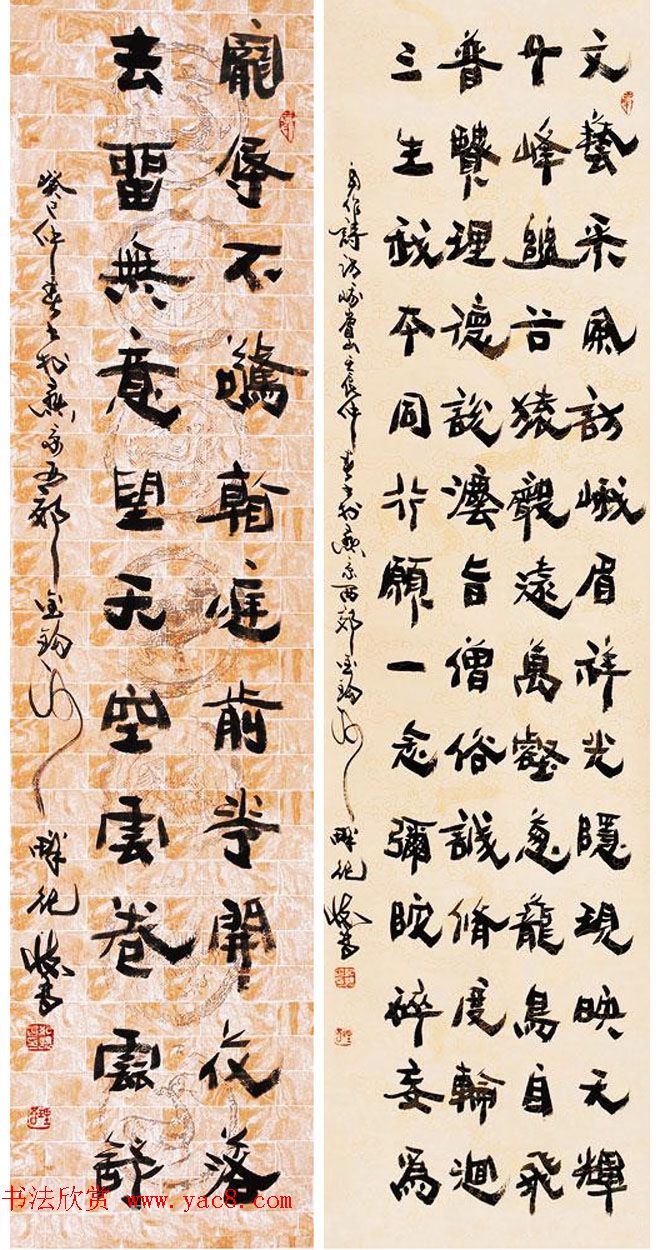 寵辱不驚看庭前華開花落
去留無意望天空雲卷雲舒
癸巳仲春書於燕京西郊
文藝采風訪峨眉祥光隱現映天輝
千峰谷猿觀遠萬壑蔥蘢鳥自飛
普賢理德說法旨僧俗誠修度輪迴
三生我本同行願一念彌陀碎妄為
自作詩訪峨眉山癸巳仲春書於燕京西郊
书法欣赏 www.yac8.com